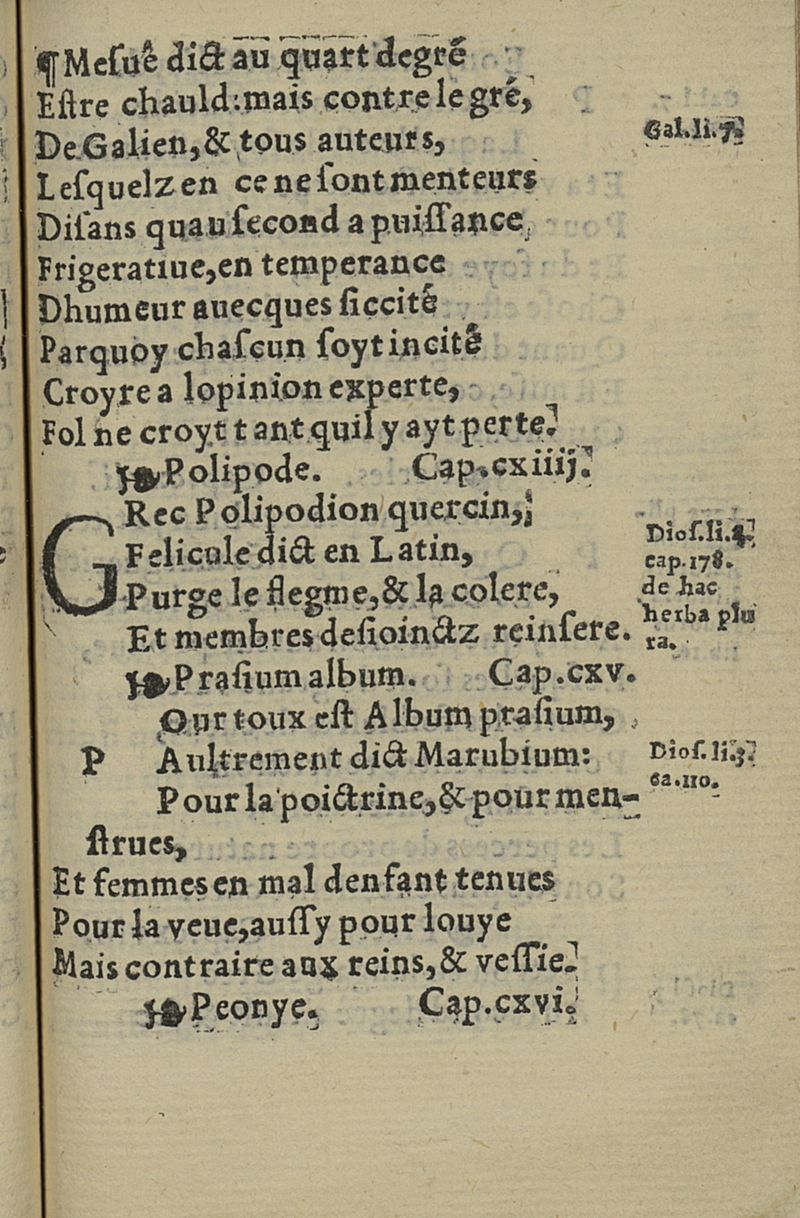 ¶Meſuê dict au quart degré
Eſtre chauld:mais contre le gré,
De Galien,& tous auteurs,
Gal.li.7.
Leſquelz en ce ne ſont menteurs
Diſans quau ſecond a puiſſance,
Frigeratiue,en temperance
Dhumeur auecques ſiccité
Parquoy chaſcun ſoyt incité
Croyre a lopinion experte,
Fol ne croyt tant quil y ayt perte.
Polipode. Cap.cxiiij.
GRec Polipodion quercin,
Felicule dict en Latin,
Purge le flegme,& la colere,
Et membres deſioinctz reinſere.
Dioſ.li.4.
cap.178.
de hac
herba plu
ra.
Praſium album. Cap.cxv.
POur toux eſt Album praſium,
Aultrement dict Marubium:
Pour la poictrine,& pour men-
ſtrues,
Dioſ.li.3.
ca.110.
Et femmes en mal denfant tenues
Pour la veue,auſſy pour louye
Mais contraire aux reins,& veſſie.
Peonye. Cap.cxvi.